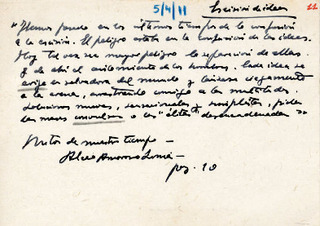 5/4/11 Escisión de ideas 22
"Hemos pasado en los últimos tiempos de la confusión
a la escisión. El peligro estaba en la confusión de las ideas.
Hoy tal vez sea mayor peligro la separación de ellas
y de ahí el aislamiento de los hombres. Cada idea se
erige en salvadora del mundo y lánzase ciegamente
a la arena, arrastrando consigo a las multitudes.
Soluciones nuevas, sensacionales y simplistas, piden
las masas
Mitos de nuestro tiempo -
Alceo Amoroso Lima -
pag. 10